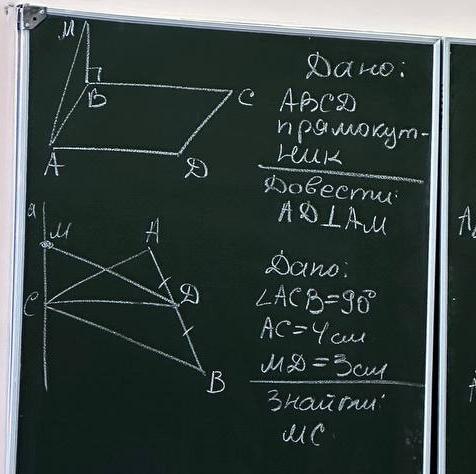 M
B
C
A
D
Дано:
ABCD
прямокут-
ник
Довести:
AD⊥AM
a
M
A
C
D
B
Дано:
∠ACB=90°
AC=4см
MD=3см
Знайти:
MC